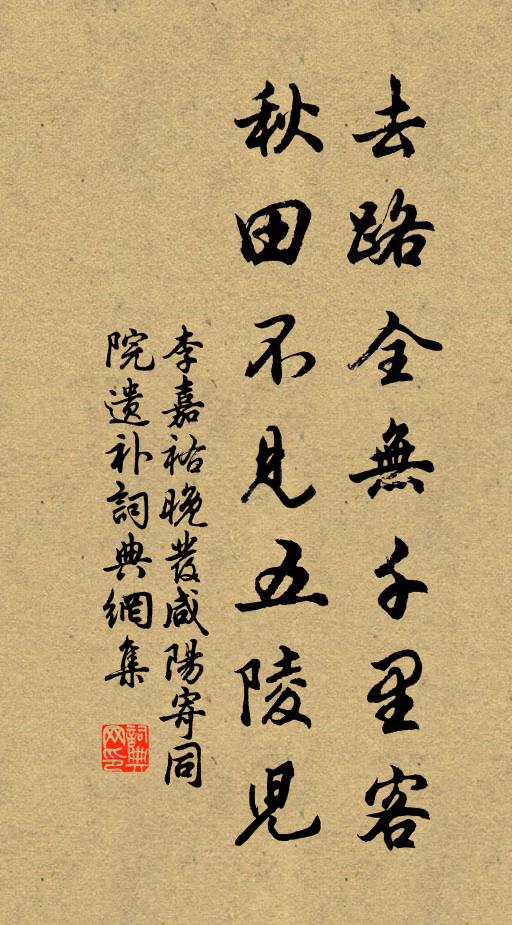 去路全無千里客
秋田不見五陵兒
李嘉祐晚發咸陽寄同
院遺补詞典網集
詞典
网印